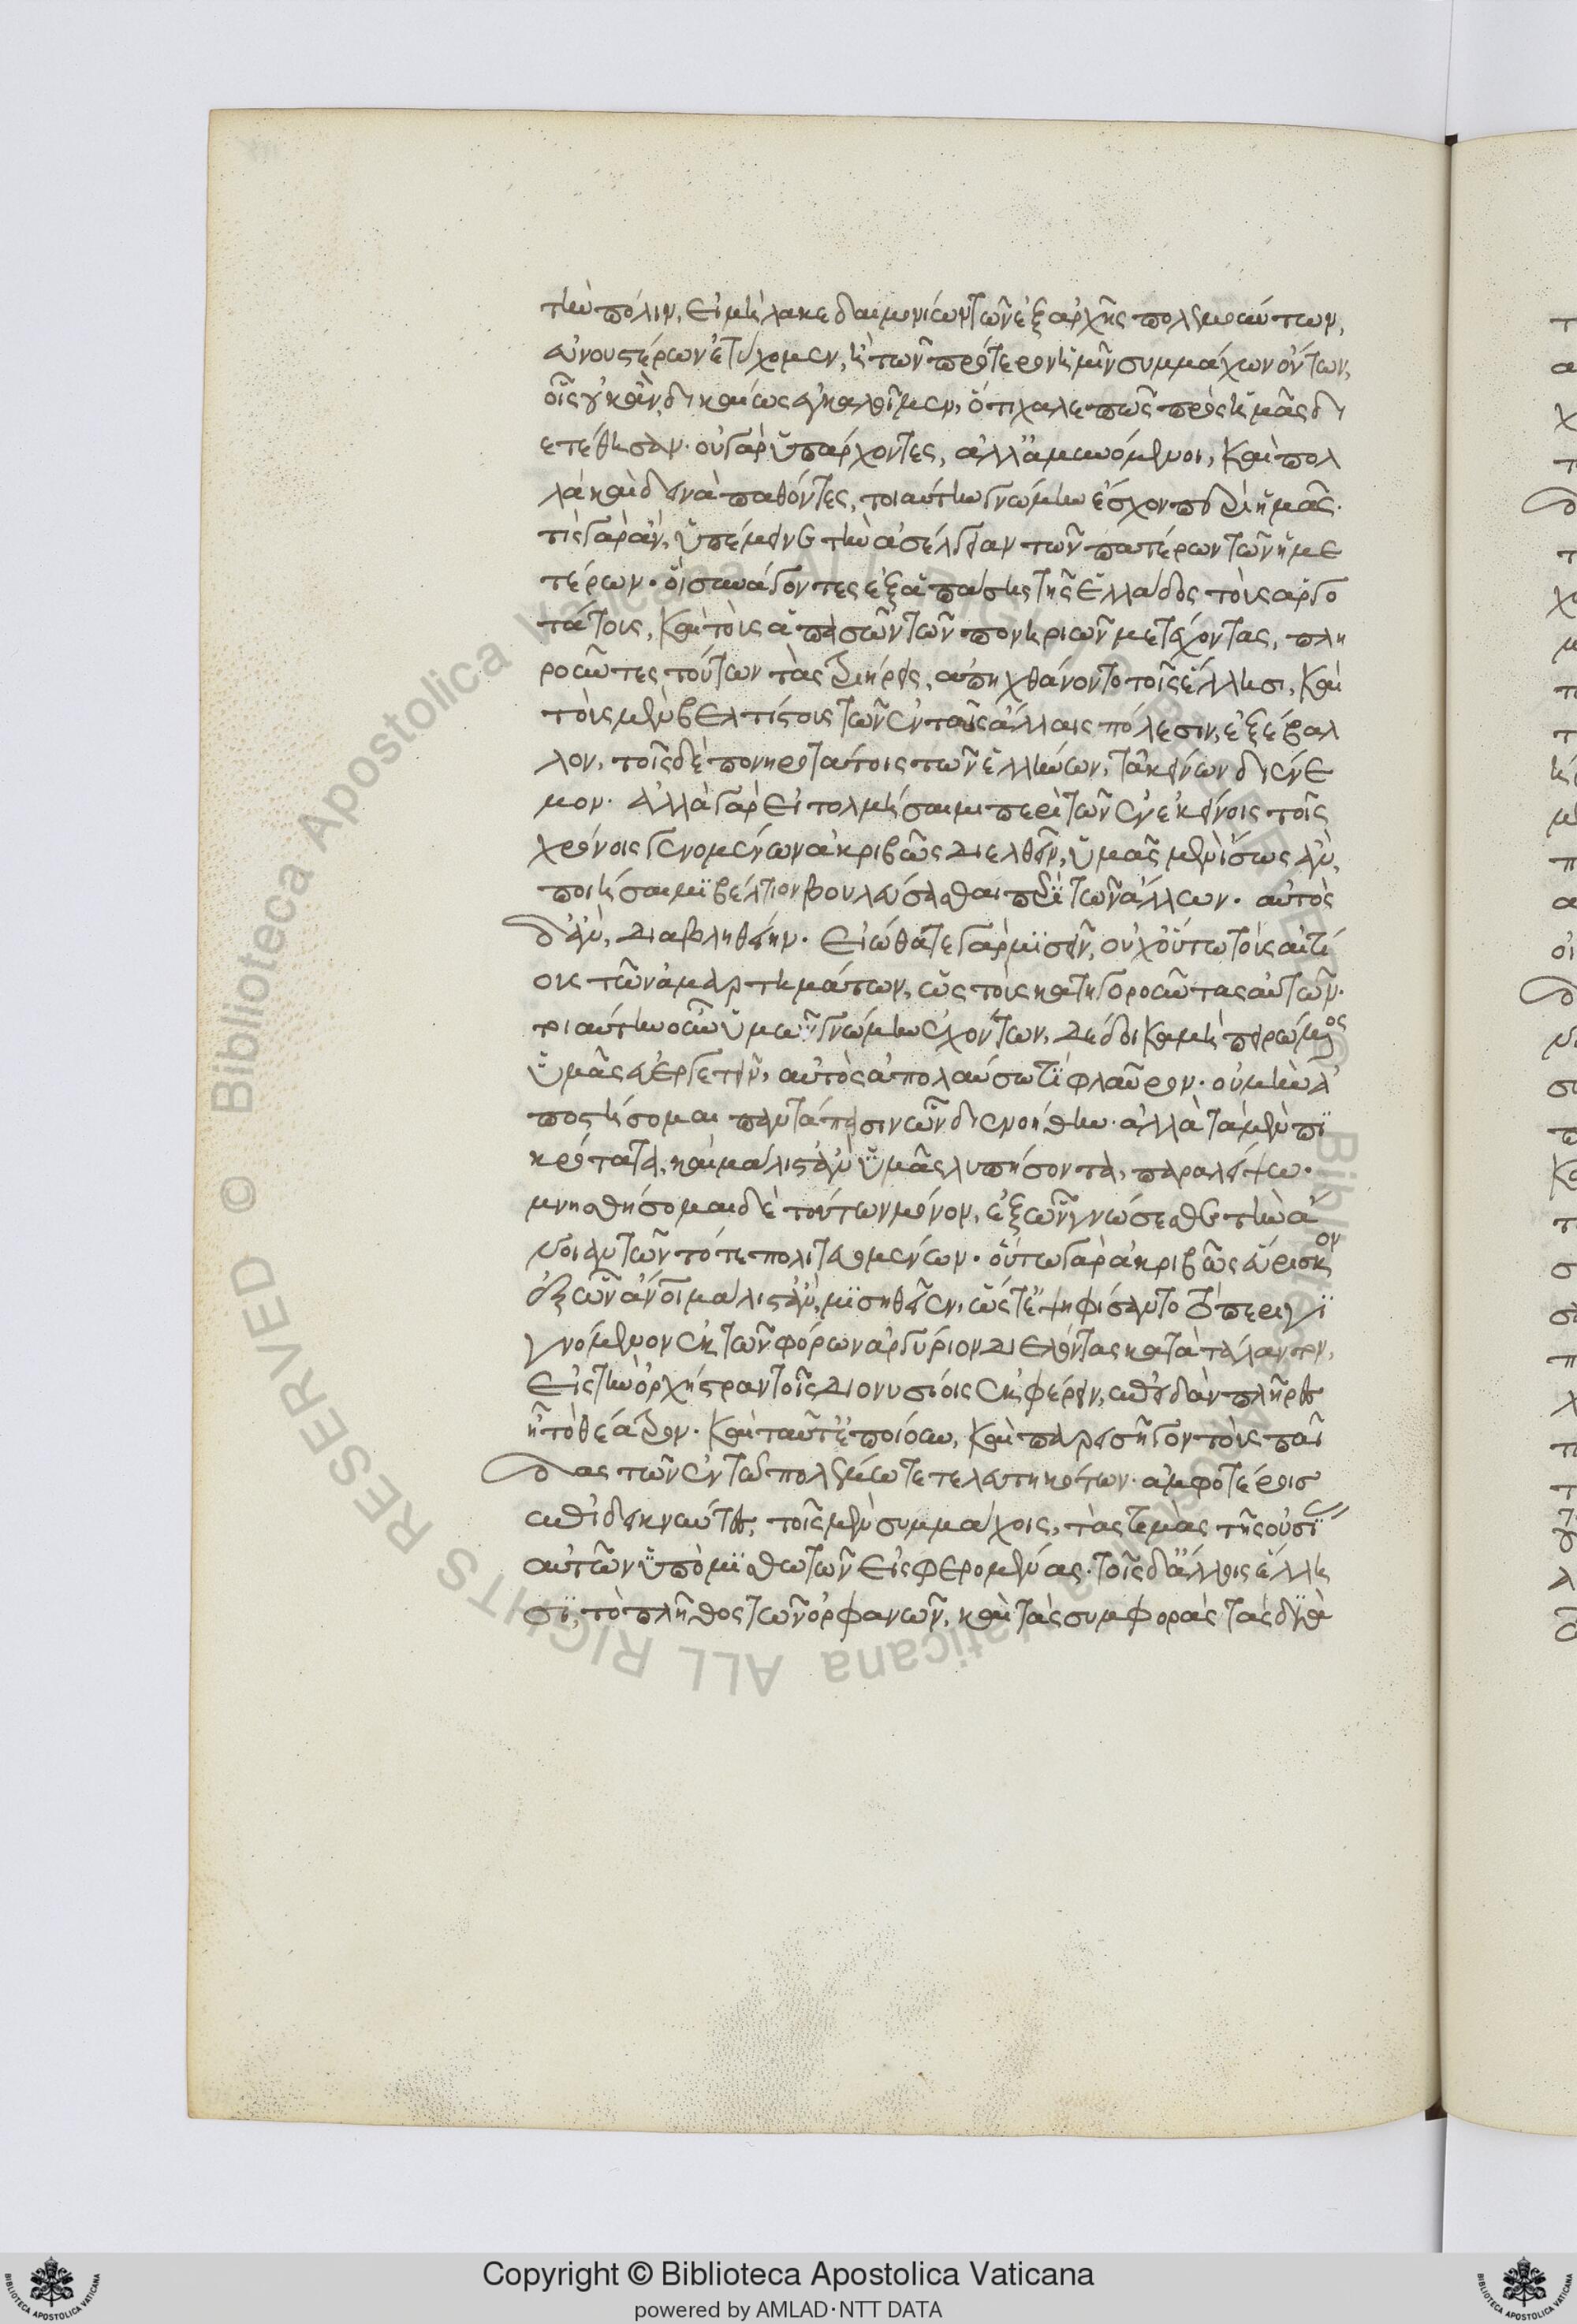 τὴν πόλιν, εἰ μὴ λακεδαιμονίων τῶν ἐξαρχῆς πολεμούντων,
εὐνουστέρων ἐτύχομεν, ἢ τῶν πρότερον ἡμῖν συμμάχων ὄντων,
οἷς οὐκ ἂν δικαίως ἐγκαλοῖμεν, ὅτι χαλεπῶς πρὸς ἡμᾶς δι
ετέθησαν. οὐ γὰρ ὑπάρχοντες, ἀλλ' ἀμυνόμενοι, καὶ πολ
λὰ καὶ δεινὰ παθόντες, τοιαύτην γνώμην ἔσχον περὶ ἡμᾶς.
τίς γὰρ ἂν, ὑπέμεινε τὴν ἀσέλγειαν τῶν πατέρων τῶν ἡμε
τέρων. οἳ συναγαγόντες ἐξ ἁπάσης τῆς ἑλλάδος τοὺς ἀργο
τάτους, καὶ τοὺς ἁπασῶν τῶν πονηριῶν μετέχοντας, πλη
ροῦντες τούτων τὰς τριήρεις, ἀπηχθάνοντο τοῖς ἕλλησι, καὶ
τοὺς μὲν βελτίστους τῶν ἐν ταῖς ἄλλαις πόλεσιν, ἐξέβαλ
λον, τοῖς δὲ πονηροτάτοις τῶν ἑλλήνων, τἀκείνων διένε
μον. ἀλλὰ γὰρ εἰ τολμήσαιμι περὶ τῶν ἐν ἐκείνοις τοῖς
χρόνοις γενομένων ἀκριβῶς διελθεῖν, ὑμᾶς μὲν ἴσως ἂν,
ποιήσαιμι βέλτιον βουλεύσασθαι περὶ τῶν ἄλλων. αὐτὸς
δ' ἂν, διαβληθείην. εἰώθατε γὰρ μισεῖν, οὐχ οὕτω τοὺς αἰτί
ους τῶν ἁμαρτημάτων, ὡς τοὺς κατηγοροῦντας αὐτῶν.
τοιαύτην οὖν ὑμῶν γνώμην ἐχόντων, δέδοικα μὴ πειρώμενος
ὑμᾶς εὐεργετεῖν, αὐτὸς ἀπολαύσω τι φλαῦρον. οὐ μὴν ἀ
ποστήσομαι παντάπασιν ὧν διενοήθην. ἀλλὰ τὰ μὲν πι
κρότατα, καὶ μάλιστ' ἂν ὑμᾶς λυπήσοντα, παραλείψω.
μνησθήσομαι δὲ τούτων μόνον, ἐξ ὧν γνώσεσθε τὴν ἄ
νοιαν τῶν τότε πολιτευομένων. οὕτω γὰρ ἀκριβῶς εὕρισκον
ἐξ ὧν ἄνθρωποι μάλιστ' ἂν, μισηθεῖεν, ὥστ' ἐψηφίσαντο τὸ περιγι
γνόμενον ἐκ τῶν φόρων ἀργύριον διελόντας κατὰ τάλαντον,
εἰς τὴν ὀρχήστραν τοῖς διονυσίοις εἰσφέρειν, ἐπειδὰν πλῆρες
ᾖ τὸ θέατρον. καὶ ταῦτ' ἐποίουν, καὶ παρεισῆγον τοὺς παῖ
δας τῶν ἐν τῶ πολέμω τετελευτηκότων. ἀμφοτέροις
ἐπιδεικνύοντες, τοῖς μὲν συμμάχοις, τὰς τιμὰς τῆς οὐσίας
αὐτῶν ὑπὸ μισθωτῶν εἰσφερομένας. τοῖς δ' ἄλλοις ἕλλη
σι, τὸ πλῆθος τῶν ὀρφανῶν, καὶ τὰς συμφορὰς τὰς διὰ
Copyright © Biblioteca Apostolica Vaticana
powered by AMLAD·NTT DATA